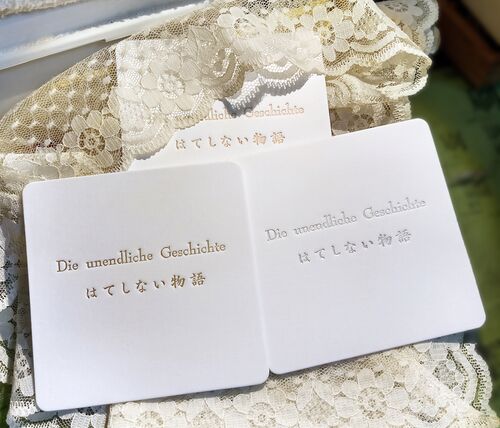 Geschichte
はてしない物語
Die unendliche Geschichte
はてしない物語
Die unendliche Geschichte
はてしない物語